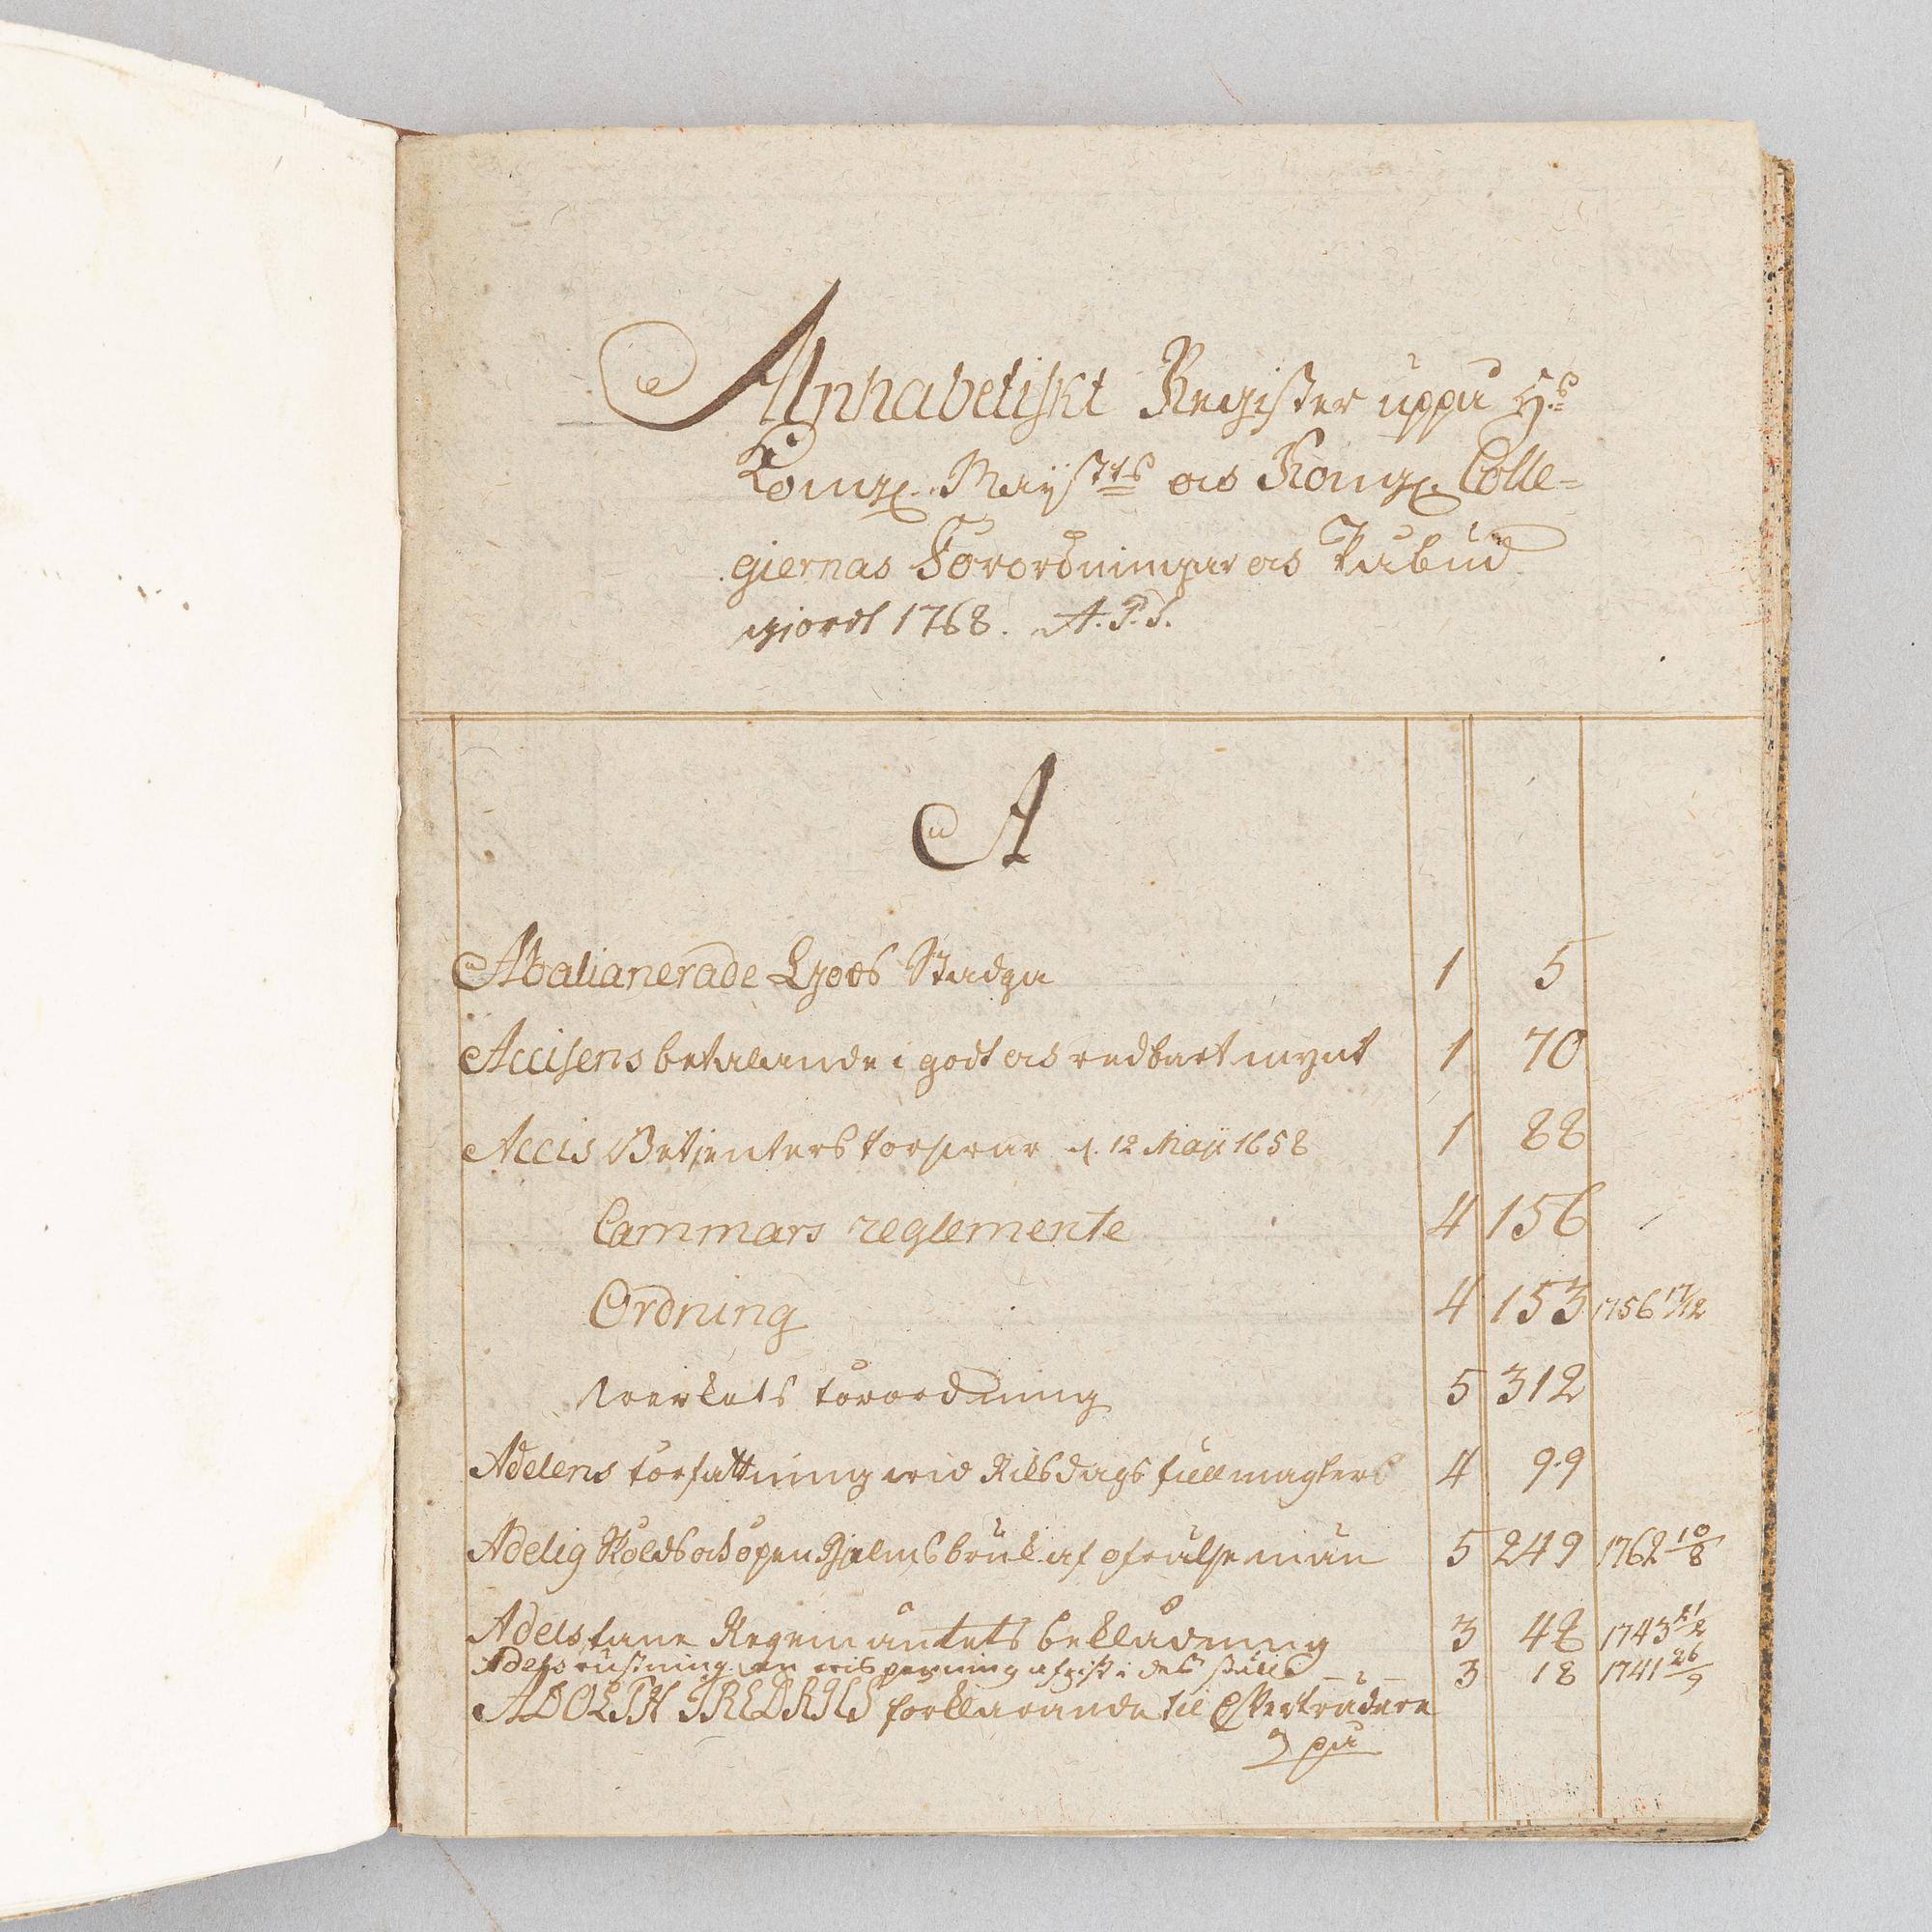 Alphabetiskt Register uppå H:s
Kongl. Maÿst:ts och Kongl. Colle=
giernas Förordningar och Påbud
gjordt 1768. A.P.S.
A
Abalianerade Gods Stadga 1 5
Accisens betalande i godt och redbart mynt 1 70
Accis Betjenters d. 12 Maji 1658 1 88
Cammars reglemente 4 156
Ordning 4 153 1756 17/12
werkets förordning 5 312
Adelens författning wid Riksdags fullmagters 4 99
Adelig Sköldt och öpen Hjelms bruk af ofrälse män 5 249 1762 10/8
Adels fane Regementets beklädning 3 48 1743
Adels rustning 3 18 1741 26/9
ADOLPH FREDRICS förklarande til Efterträdare
på